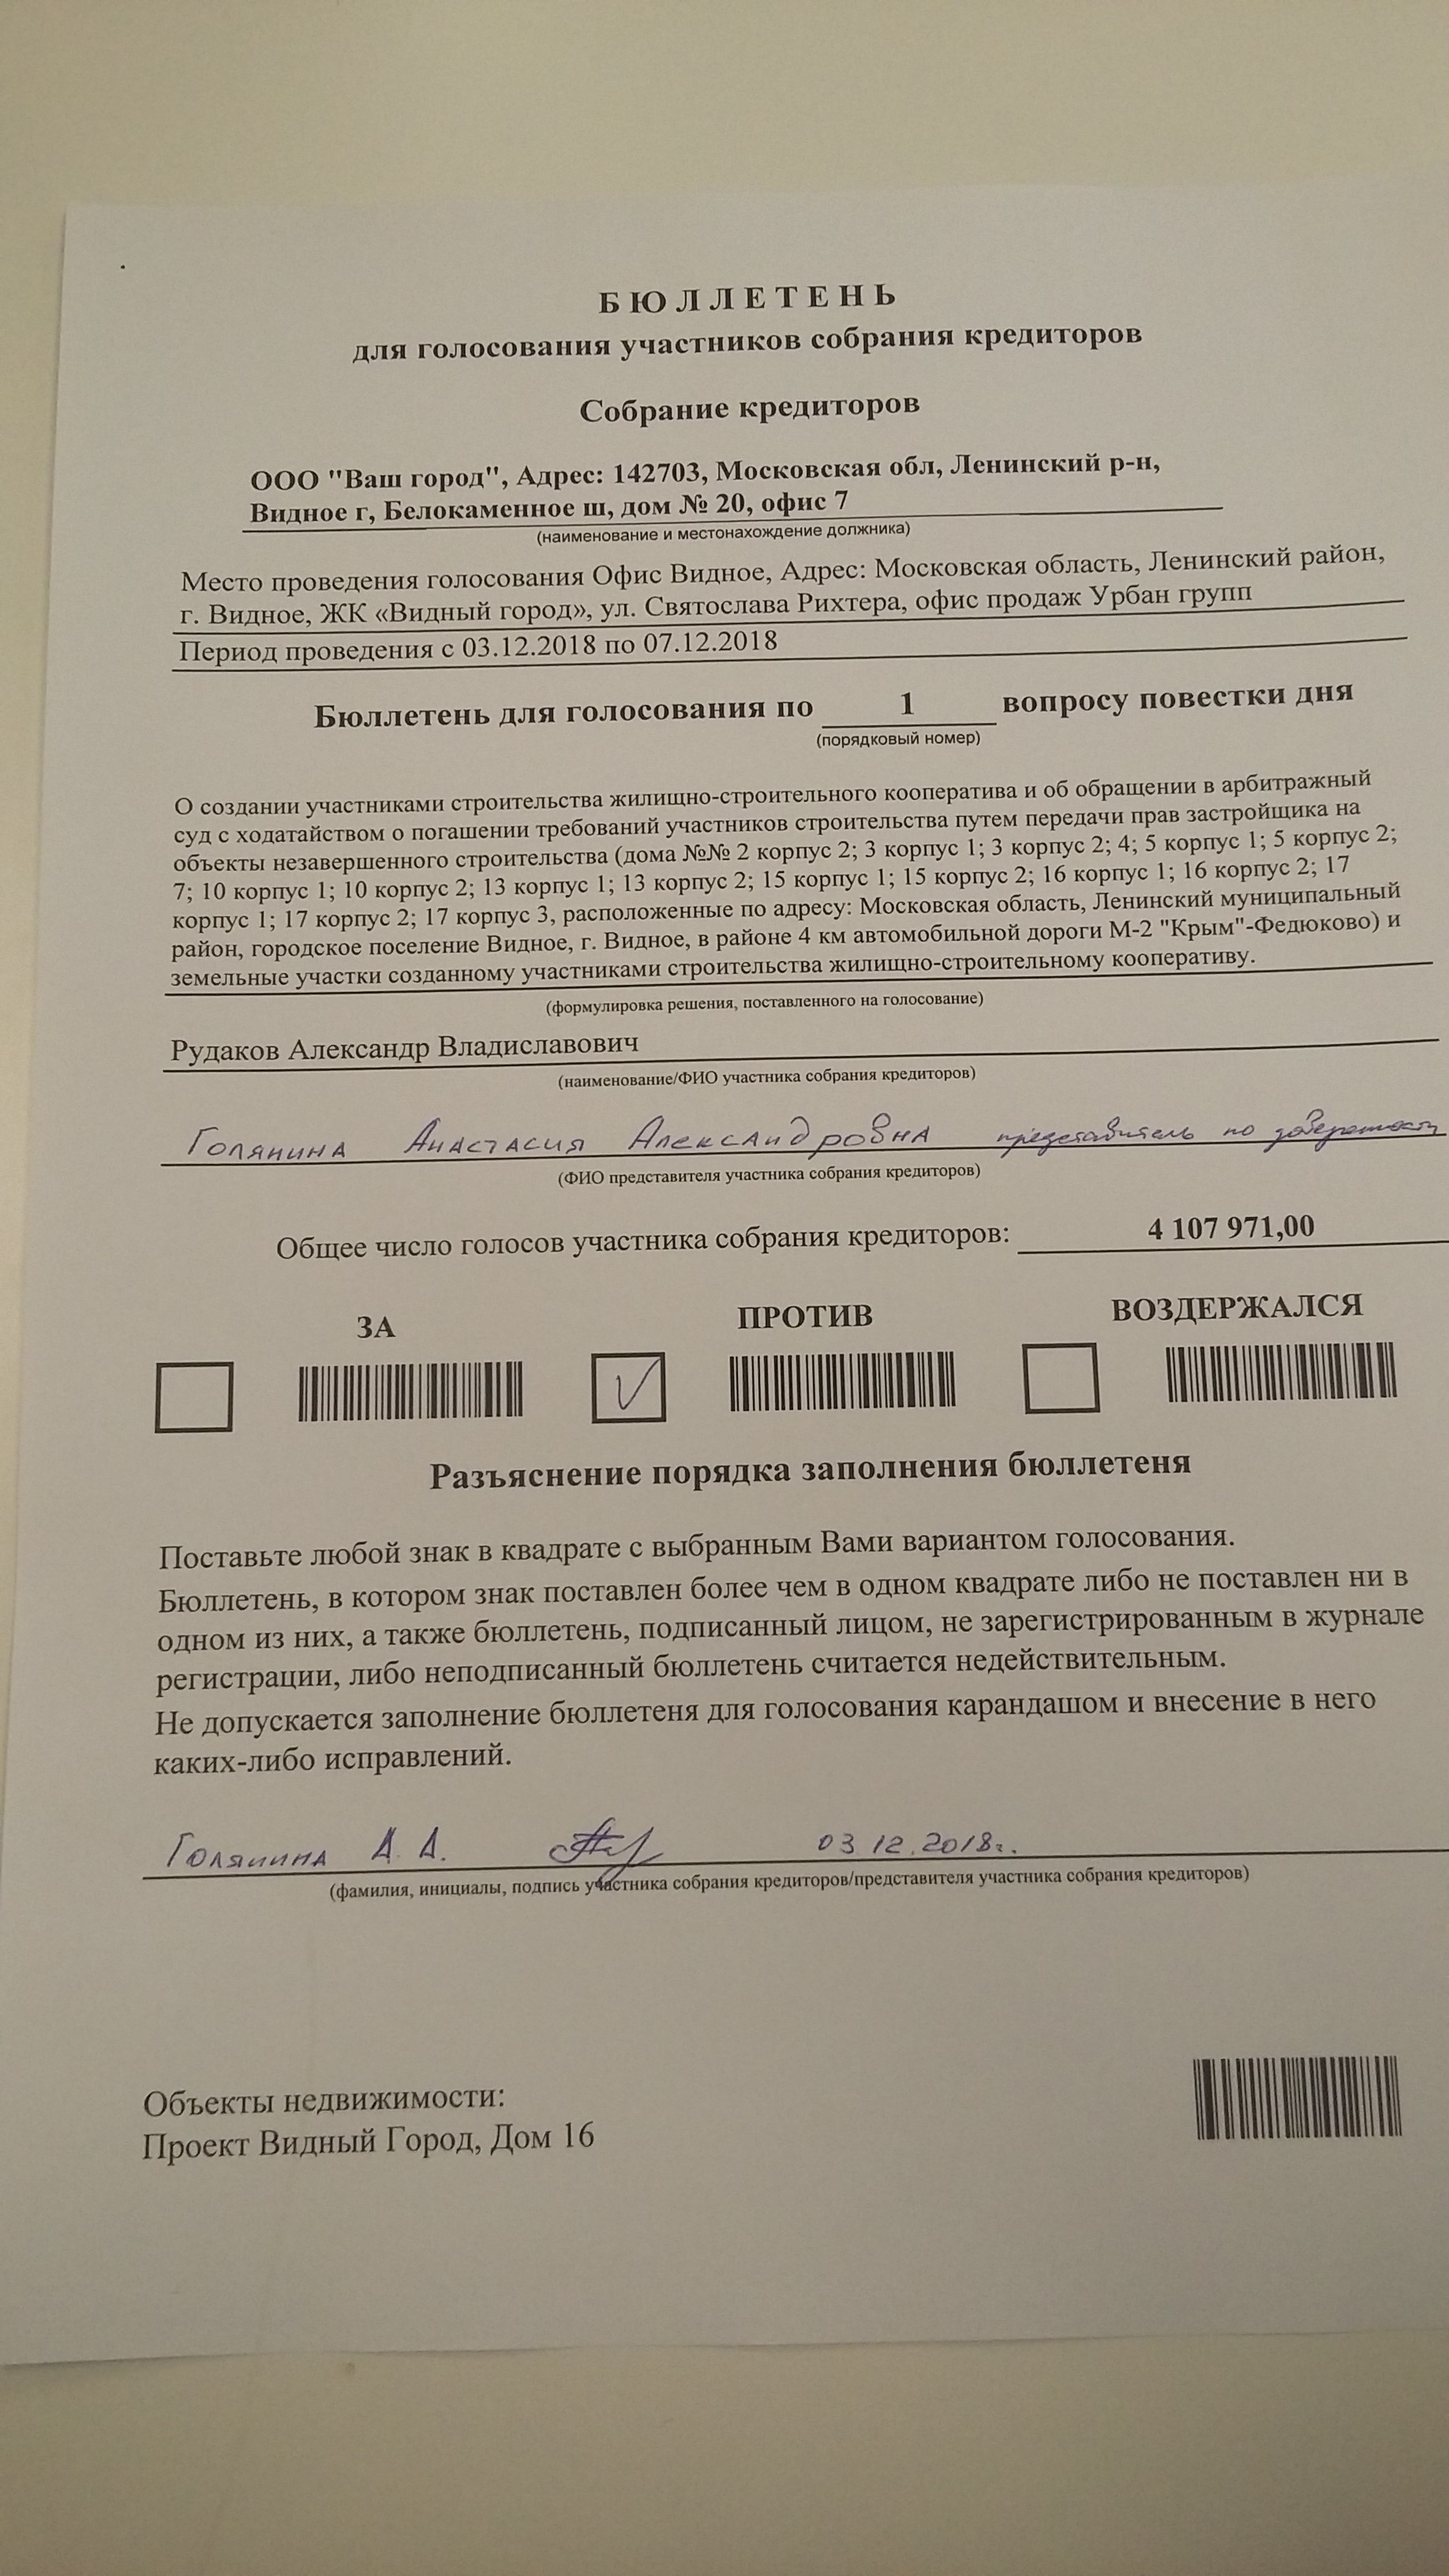 БЮЛЛЕТЕНЬ
для голосования участников собрания кредиторов
Собрание кредиторов
ООО "Ваш город", Адрес: 142703, Московская обл, Ленинский р-н,
Видное г, Белокаменное ш, дом № 20, офис 7
(наименование и местонахождение должника)
Место проведения голосования Офис Видное, Адрес: Московская область, Ленинский район,
г. Видное, ЖК «Видный город», ул. Святослава Рихтера, офис продаж Урбан групп
Период проведения с 03.12.2018 по 07.12.2018
Бюллетень для голосования по 1 вопросу повестки дня
(порядковый номер)
О создании участниками строительства жилищно-строительного кооператива и об обращении в арбитражный
суд с ходатайством о погашении требований участников строительства путем передачи прав застройщика на
объекты незавершенного строительства (дома №№ 2 корпус 2; 3 корпус 1; 3 корпус 2; 4; 5 корпус 1; 5 корпус 2;
7; 10 корпус 1; 10 корпус 2; 13 корпус 1; 13 корпус 2; 15 корпус 1; 15 корпус 2; 16 корпус 1; 16 корпус 2; 17
корпус 1; 17 корпус 2; 17 корпус 3, расположенные по адресу: Московская область, Ленинский муниципальный
район, городское поселение Видное, г. Видное, в районе 4 км автомобильной дороги М-2 "Крым"-Федюково) и
земельные участки созданному участниками строительства жилищно-строительному кооперативу.
(формулировка решения, поставленного на голосование)
Рудаков Александр Владиславович
(наименование/ФИО участника собрания кредиторов)
Голянина Анастасия Александровна представитель по доверенности
(ФИО представителя участника собрания кредиторов)
Общее число голосов участника собрания кредиторов: 4 107 971,00
ЗА ПРОТИВ ВОЗДЕРЖАЛСЯ
Разъяснение порядка заполнения бюллетеня
Поставьте любой знак в квадрате с выбранным Вами вариантом голосования.
Бюллетень, в котором знак поставлен более чем в одном квадрате либо не поставлен ни в
одном из них, а также бюллетень, подписанный лицом, не зарегистрированным в журнале
регистрации, либо неподписанный бюллетень считается недействительным.
Не допускается заполнение бюллетеня для голосования карандашом и внесение в него
каких-либо исправлений.
Голянина А. А. 03.12.2018г.
(фамилия, инициалы, подпись участника собрания кредиторов/представителя участника собрания кредиторов)
Объекты недвижимости:
Проект Видный Город, Дом 16